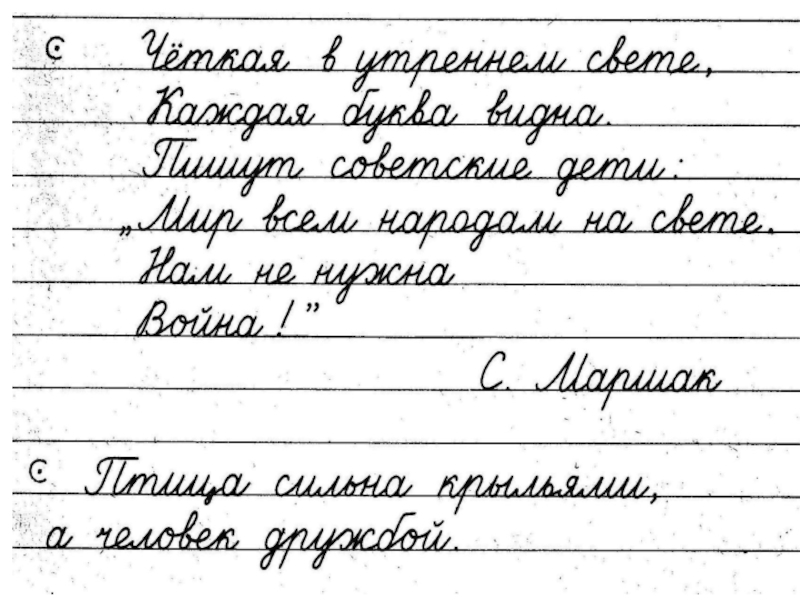 Чёткая в утреннем свете,
Каждая буква видна.
Пишут советские дети:
„Мир всем народам на свете.
Нам не нужна
Война!”
С. Маршак
Птица сильна крыльями,
а человек дружбой.